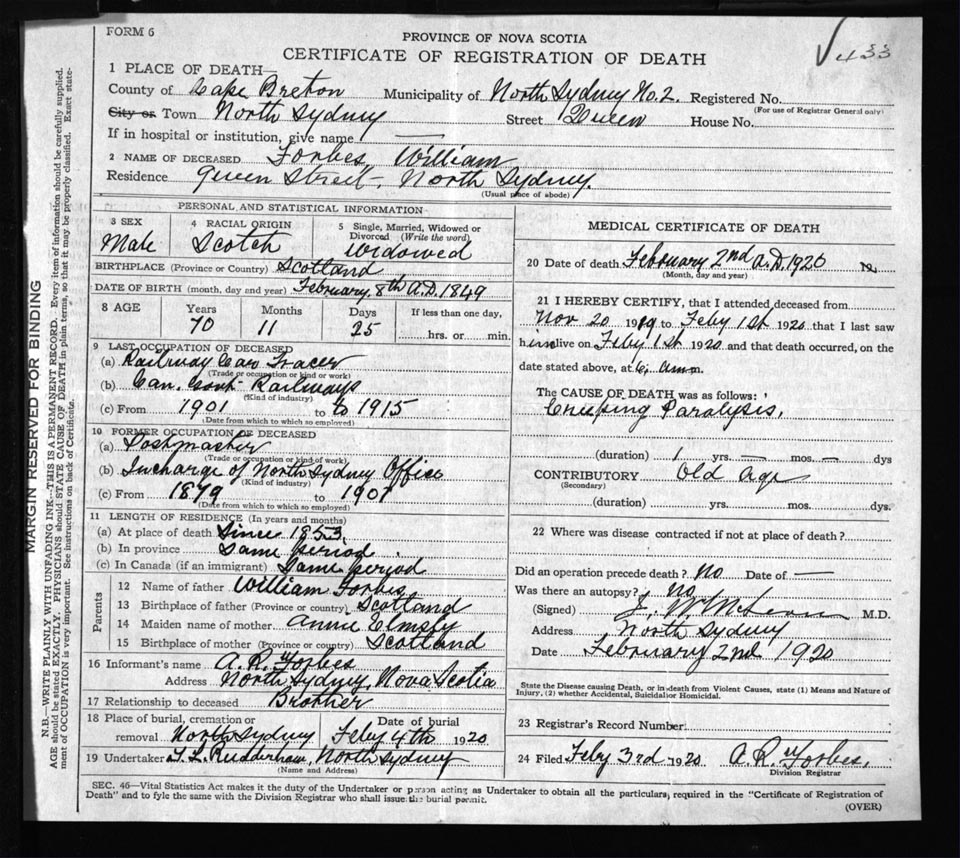 FORM 6
PROVINCE OF NOVA SCOTIA
CERTIFICATE OF REGISTRATION OF DEATH
√433
1 PLACE OF DEATH—
County of Cape Breton Municipality of North Sydney No. 2. Registered No.
(For use of Registrar General only)
City or Town North Sydney Street Queen House No.
If in hospital or institution, give name —
2 NAME OF DECEASED Forbes, William
Residence Queen Street, North Sydney.
(Usual place of abode)
PERSONAL AND STATISTICAL INFORMATION
3 SEX Male
4 RACIAL ORIGIN Scotch
5 Single, Married, Widowed or Divorced (Write the word) Widowed
BIRTHPLACE (Province or Country) Scotland
DATE OF BIRTH (month, day and year) February 8th A.D. 1849
8 AGE Years Months Days If less than one day,
70 11 25 hrs. or min.
9 LAST OCCUPATION OF DECEASED
(a) Railway Car Tracer
(Trade or occupation or kind or work)
(b) Can. Govt Railways
(Kind of industry)
(c) From 1901 to to 1915
(Date from which to which so employed)
10 FORMER OCCUPATION OF DECEASED
(a) Postmaster
(Trade or occupation or kind of work)
(b) Incharge of North Sydney Office
(Kind of industry)
(c) From 1879 to 1901
(Date from which to which so employed)
11 LENGTH OF RESIDENCE (In years and months)
(a) At place of death Since 1853.
(b) In province Same period.
(c) In Canada (if an immigrant) Same period
Parents
12 Name of father William Forbes
13 Birthplace of father (Province or country) Scotland
14 Maiden name of mother Annie Elmsly
15 Birthplace of mother (Province or country) Scotland
16 Informant's name A. R. Forbes
Address North Sydney, Nova Scotia
17 Relationship to deceased Brother
18 Place of burial, cremation or removal North Sydney
Date of burial Feby 4th 1920
19 Undertaker F. L. Rudderham, North Sydney
(Name and Address)
MEDICAL CERTIFICATE OF DEATH
20 Date of death February 2nd A.D. 1920 19
(Month, day and year)
21 I HEREBY CERTIFY, that I attended deceased from
Nov 20 1919 to Feby 1st 1920 that I last saw
h im alive on Feby 1st 1920 and that death occurred, on the
date stated above, at 6. a.m.
The CAUSE OF DEATH was as follows:
Creeping Paralysis.
(duration) 1 yrs. — mos. — dys
CONTRIBUTORY Old Age
(Secondary)
(duration) yrs. mos. dys.
22 Where was disease contracted if not at place of death?
Did an operation precede death? No Date of —
Was there an autopsy? No
(Signed) McLean M.D.
Address North Sydney
Date February 2nd 1920
State the Disease causing Death, or in death from Violent Causes, state (1) Means and Nature of
Injury, (2) whether Accidental, Suicidal or Homicidal.
23 Registrar's Record Number
24 Filed Feby 3rd 1920 A. R. Forbes,
Division Registrar
SEC. 46—Vital Statistics Act makes it the duty of the Undertaker or person acting as Undertaker to obtain all the particulars, required in the "Certificate of Registration of
Death" and to fyle the same with the Division Registrar who shall issue the burial permit.
(OVER)
MARGIN RESERVED FOR BINDING
N.B.—WRITE PLAINLY WITH UNFADING INK—THIS IS A PERMANENT RECORD. Every item of information should be carefully supplied.
AGE should be stated EXACTLY. PHYSICIANS should STATE CAUSE OF DEATH in plain terms, so that it may be properly classified. Exact state-
ment of OCCUPATION is very important. See instructions on back of Certificate.